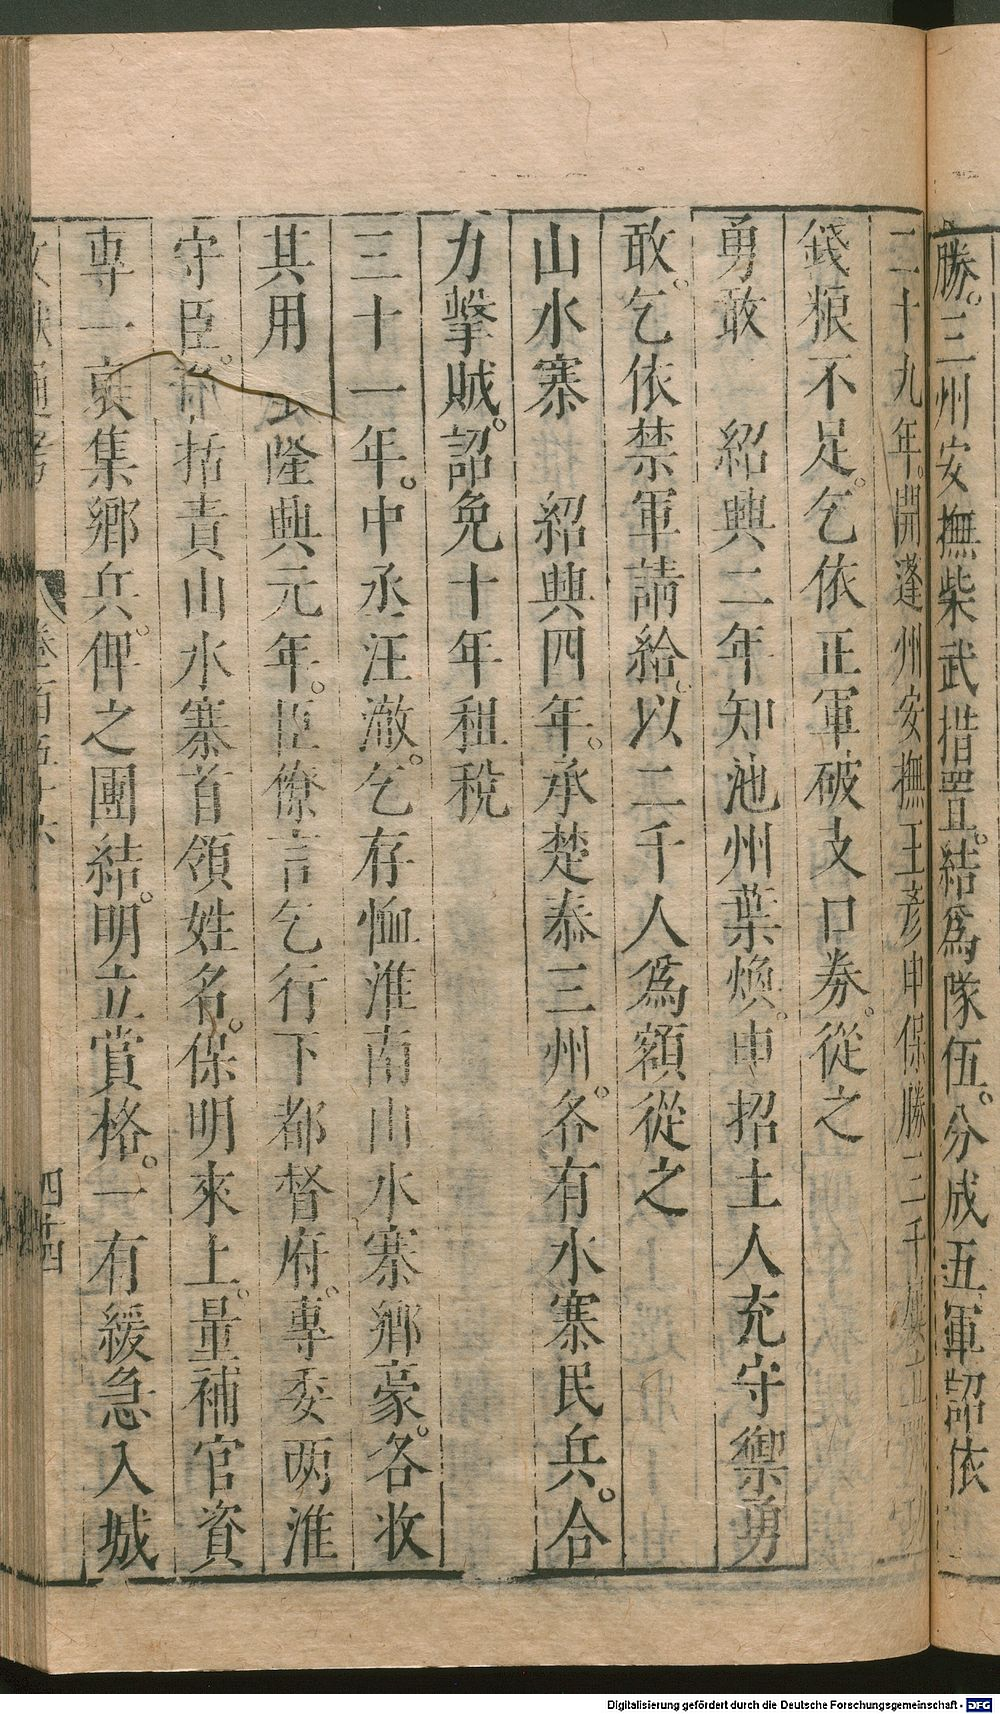 勝。三州安撫柴武措置。結爲隊伍。分成五軍詔依
二十九年。開逢州安撫王彦申保勝二千
錢粮不足。乞依正軍破支口券。從之
勇敢 紹興二年知池州葉煥。申招土人充守禦勇
敢。乞依禁軍請給。以二千人爲額從之
山水寨 紹興四年。承楚泰三州。各有水寨民兵。合
力擊賊。詔免十年租稅
三十一年。中丞汪澈。乞存恤淮南山水寨鄉豪。各收
其用 隆興元年。臣僚言乞行下都督府。專委两淮
守臣。括責山水寨首領姓名。保明來上。量補官資
專一裒集鄉兵。俾之團結。明立賞格。一有緩急入城
文獻通考 卷一百五十六 四十四
Digitalisierung gefördert durch die Deutsche Forschungsgemeinschaft - DFG